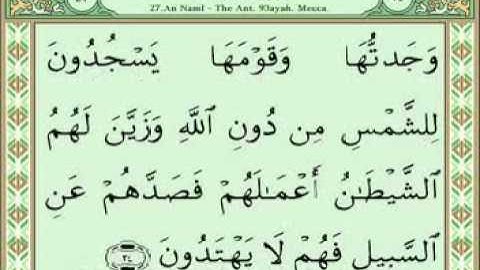 27.An Naml - The Ant. 93ayah. Mecca.
وَجَدتُّهَا وَقَوْمَهَا يَسْجُدُونَ
لِلشَّمْسِ مِن دُونِ ٱللَّهِ وَزَيَّنَ لَهُمُ
ٱلشَّيْطَٰنُ أَعْمَٰلَهُمْ فَصَدَّهُمْ عَنِ
ٱلسَّبِيلِ فَهُمْ لَا يَهْتَدُونَ ٢٤